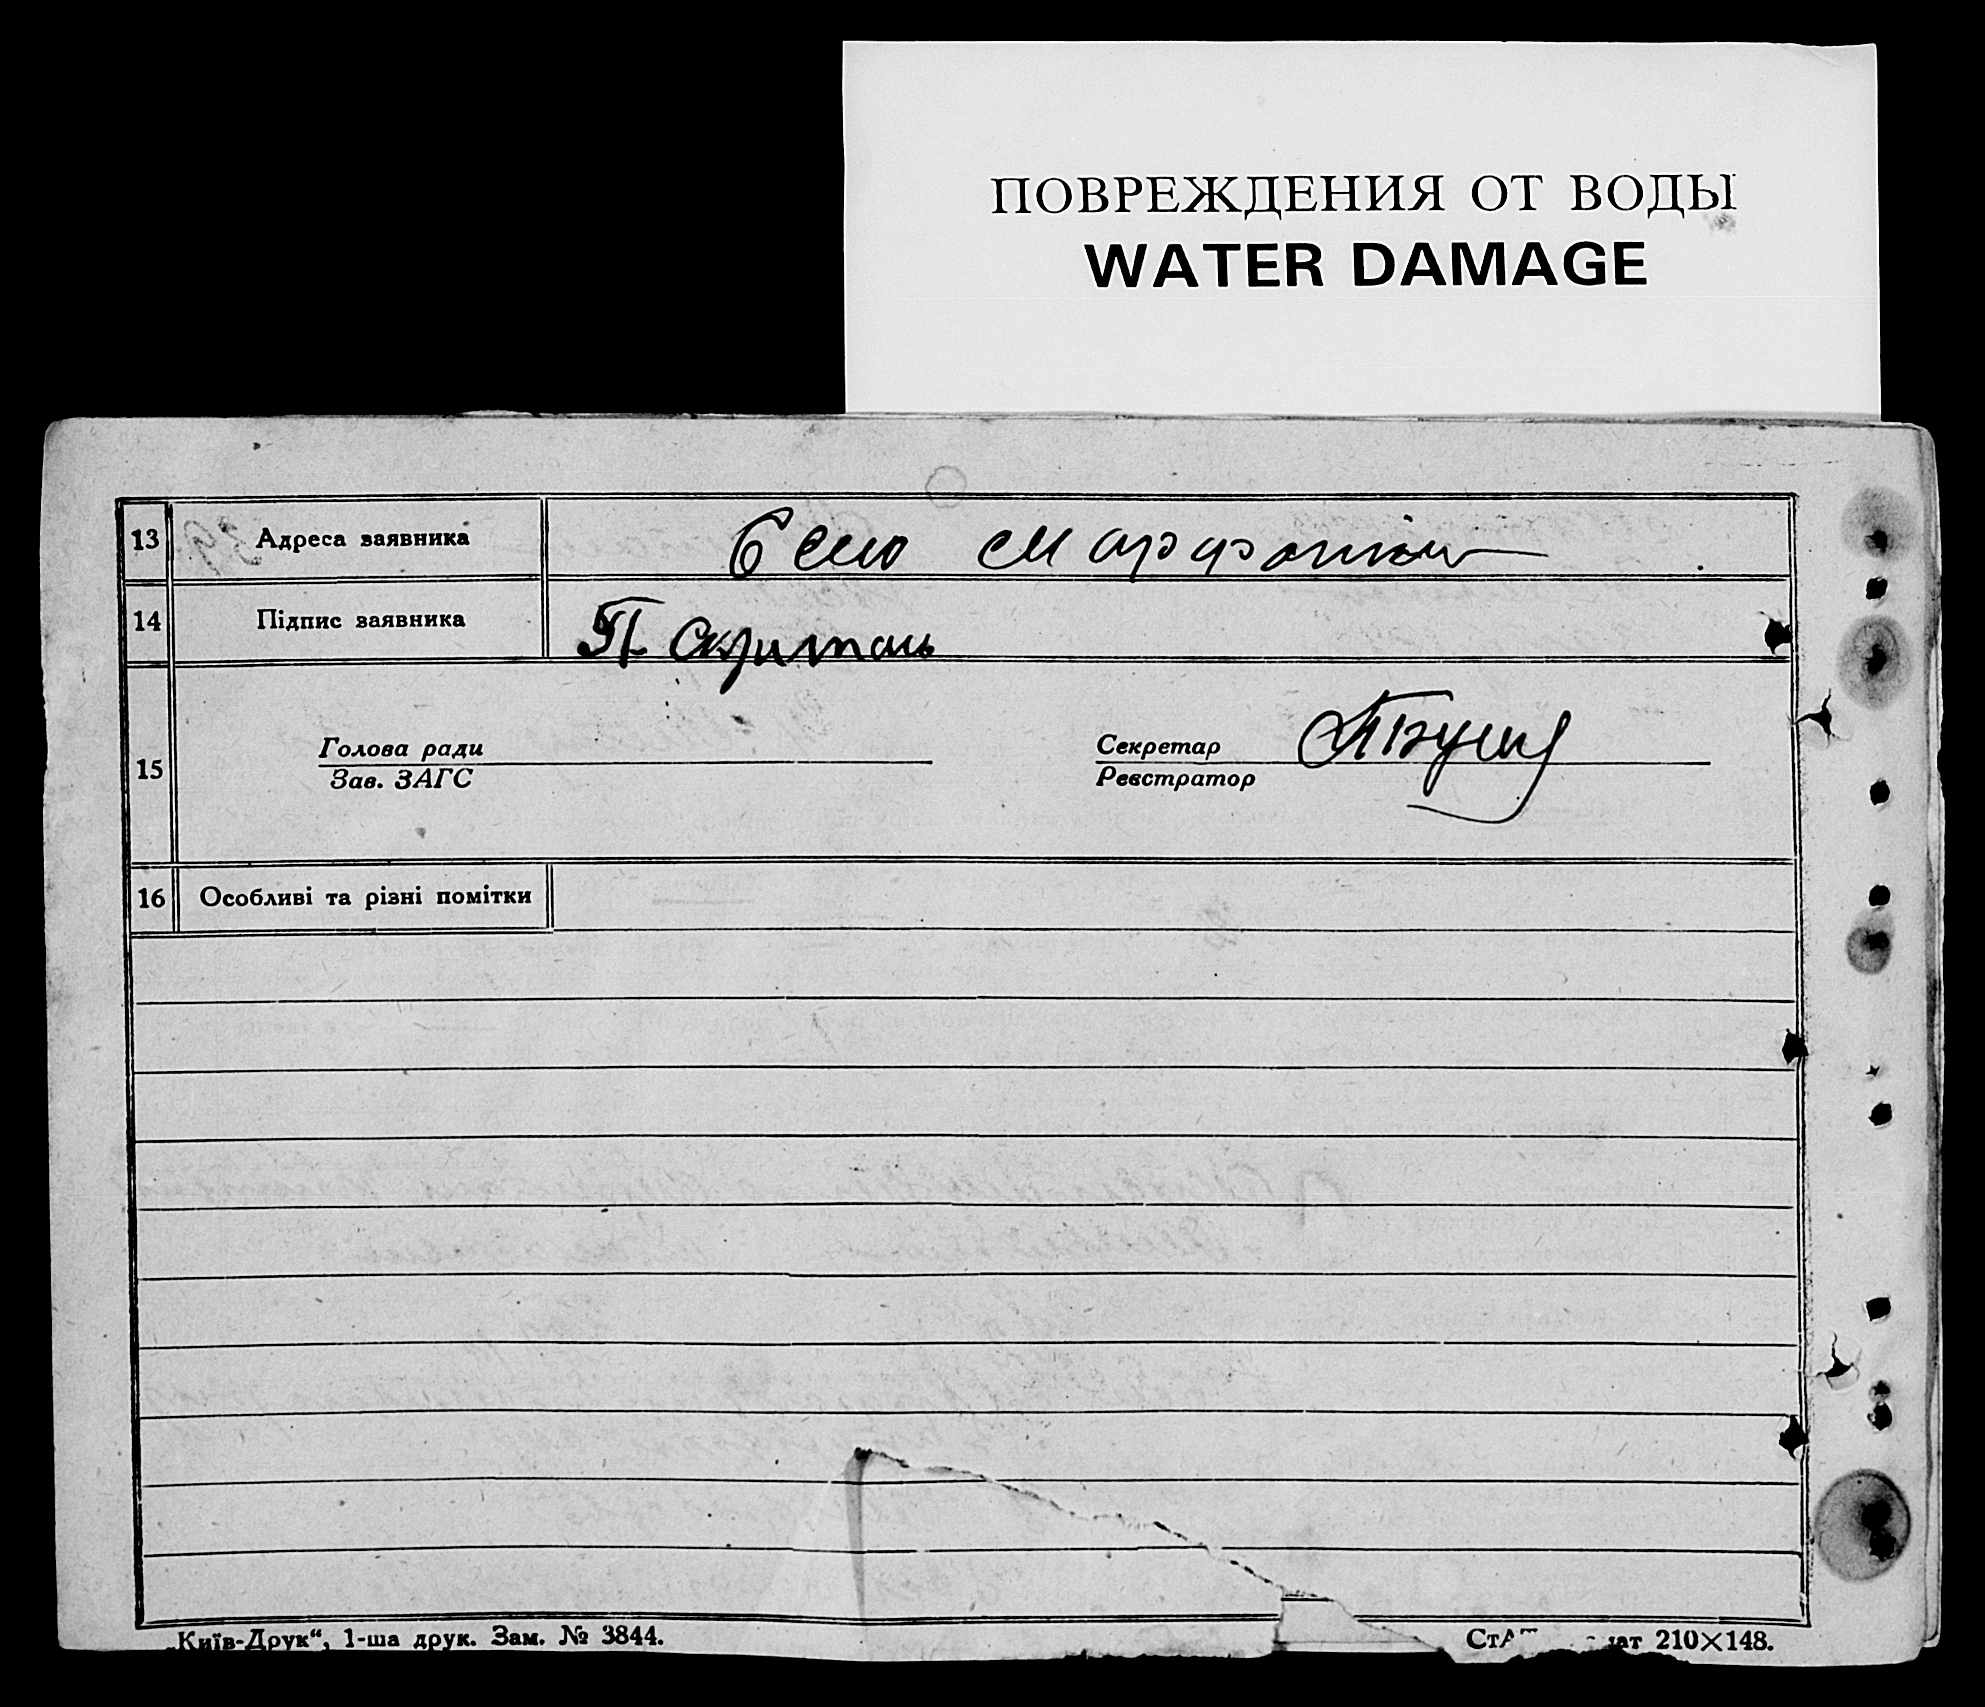 ПОВРЕЖДЕНИЯ ОТ ВОДЫ
WATER DAMAGE
13 Адреса заявника
14 Підпис заявника П
15 Голова ради
Зав. ЗАГС
Секретар
Реєстратор
16 Особливі та різні помітки
„Київ-Друк“, 1-ша друк. Зам. № 3844.
210×148.